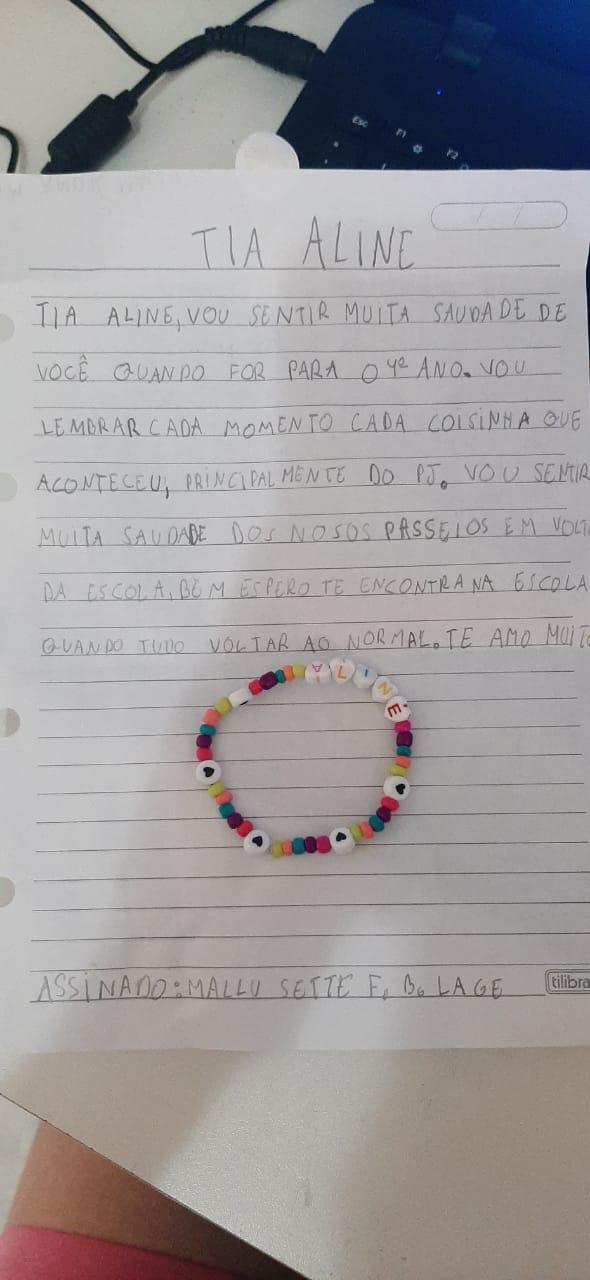 Esc
F1
F2
TIA ALINE
TIA ALINE, VOU SENTIR MUITA SAUDADE DE
VOCÊ QUANDO FOR PARA O 4º ANO. VOU
LEMBRAR CADA MOMENTO CADA COISINHA QUE
ACONTECEU, PRINCIPALMENTE DO PJ. VOU SENTIR
MUITA SAUDADE DOS NOSOS PASSEIOS EM VOLT
DA ESCOLA, BEM ESPERO TE ENCONTRA NA ESCOLA
QUANDO TUDO VOLTAR AO NORMAL. TE AMO MUITO
ALINE
ASSINADO: MALLU SETTE F. B. LAGE
tilibra